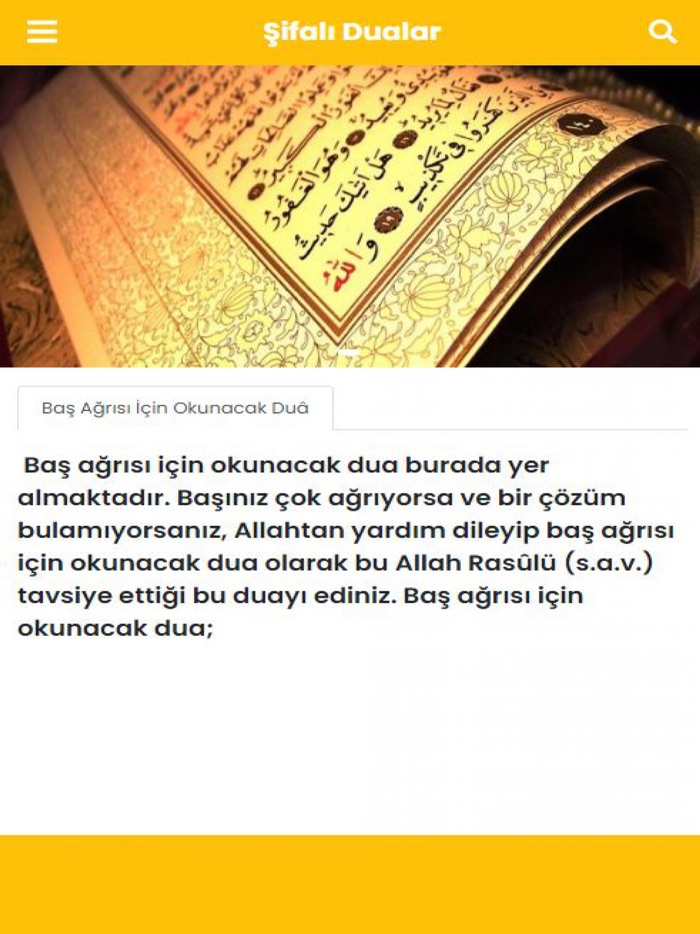 Şifalı Dualar
وَهُوَ الْغَفُورُ
هَلْ أَتٰيكَ حَدِيثُ
كَفَرُوا فِى تَكْذِيبٍ
وَاللّٰهُ
Baş Ağrısı İçin Okunacak Duâ
Baş ağrısı için okunacak dua burada yer
almaktadır. Başınız çok ağrıyorsa ve bir çözüm
bulamıyorsanız, Allahtan yardım dileyip baş ağrısı
için okunacak dua olarak bu Allah Rasûlü (s.a.v.)
tavsiye ettiği bu duayı ediniz. Baş ağrısı için
okunacak dua;